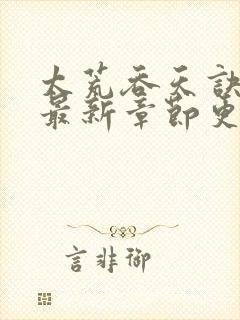 大荒吞天訣
最新章節更
言非御